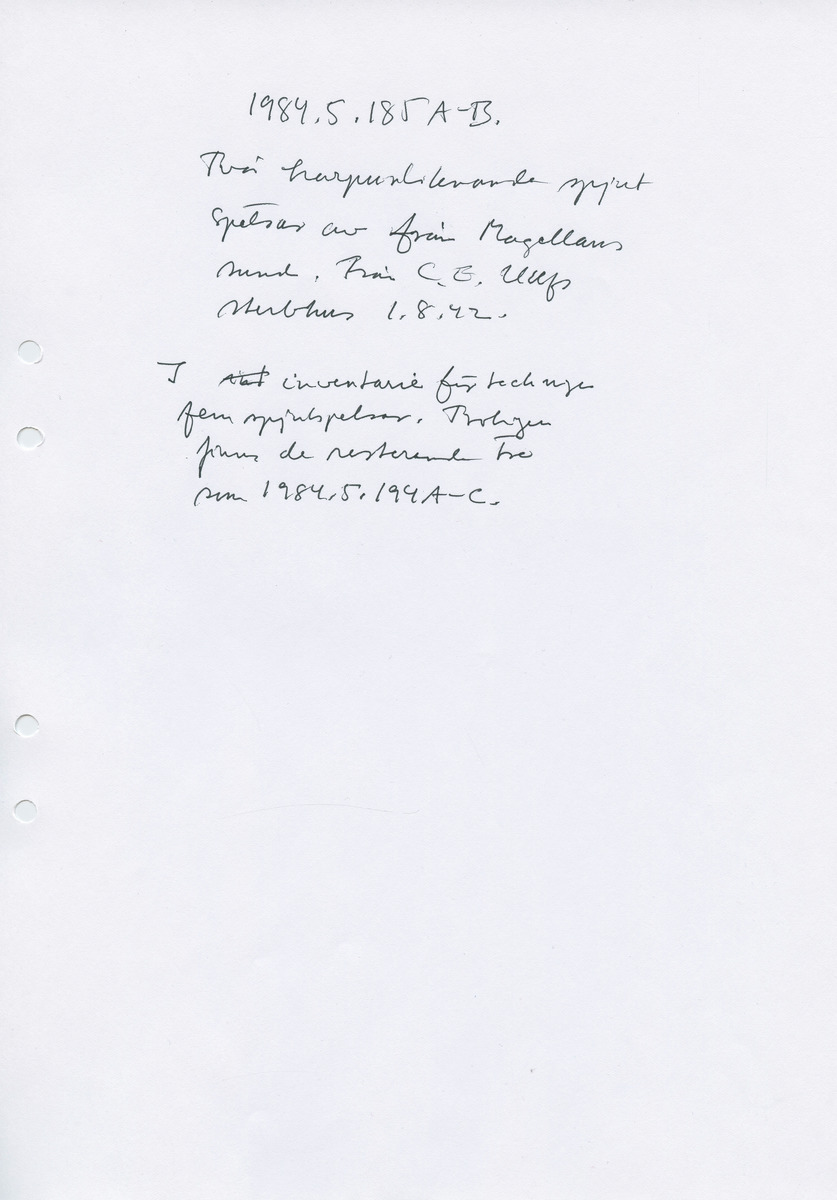 1984.5.185 A-B.
Två harpunliknande spjut
spetsar av från Magellans
sund. Från C.E. Ulffs
sterbhus 1.8.42.
I inventarieförteckningen
fem spjutspetsar. Troligen
finns de resterande tre
som 1984.5.194A-C.